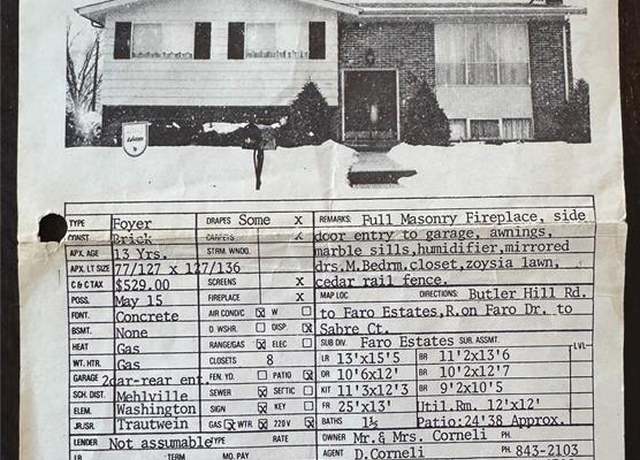 TYPE Foyer DRAPES Some X REMARKS: Full Masonry Fireplace, side
CONST Brick CARPETS X door entry to garage, awnings,
APX. AGE 13 Yrs. STRM. WNDO. marble sills,humidifier,mirrored
APX. LT SIZE 77/127 x 127/136 SCREENS X drs.M.Bedrm.closet,zoysia lawn,
C & C TAX $529.00 FIREPLACE X cedar rail fence.
POSS. May 15 AIR COND/C X W MAP LOC DIRECTIONS: Butler Hill Rd.
FONT. Concrete D. WSHR. DISP. X to Faro Estates,R.on Faro Dr. to
BSMT. None RANGE/GAS X ELEC Sabre Ct.
HEAT Gas CLOSETS 8 SUB DIV. Faro Estates SUR. ASSMT. LVL
WT. HTR. Gas FEN. YD. PATIO X LR 13'x15'5 BR 11'2x13'6
GARAGE 2car-rear ent. SEWER X SEPTIC DR 10'6x12' BR 10'2x12'7
SCH. DIST. Mehlville SIGN X KEY KIT 11'3x12'3 BR 9'2x10'5
ELEM. Washington GAS X WTR X 220V X FR 25'x13' Util.Rm. 12'x12'
JR/SR. Trautwein BATHS 1½ Patio:24'38 Approx.
LENDER Not assumable TYPE RATE OWNER Mr.& Mrs. Corneli PH.
LB TERM MO. PAY AGENT D.Corneli PH. 843-2103